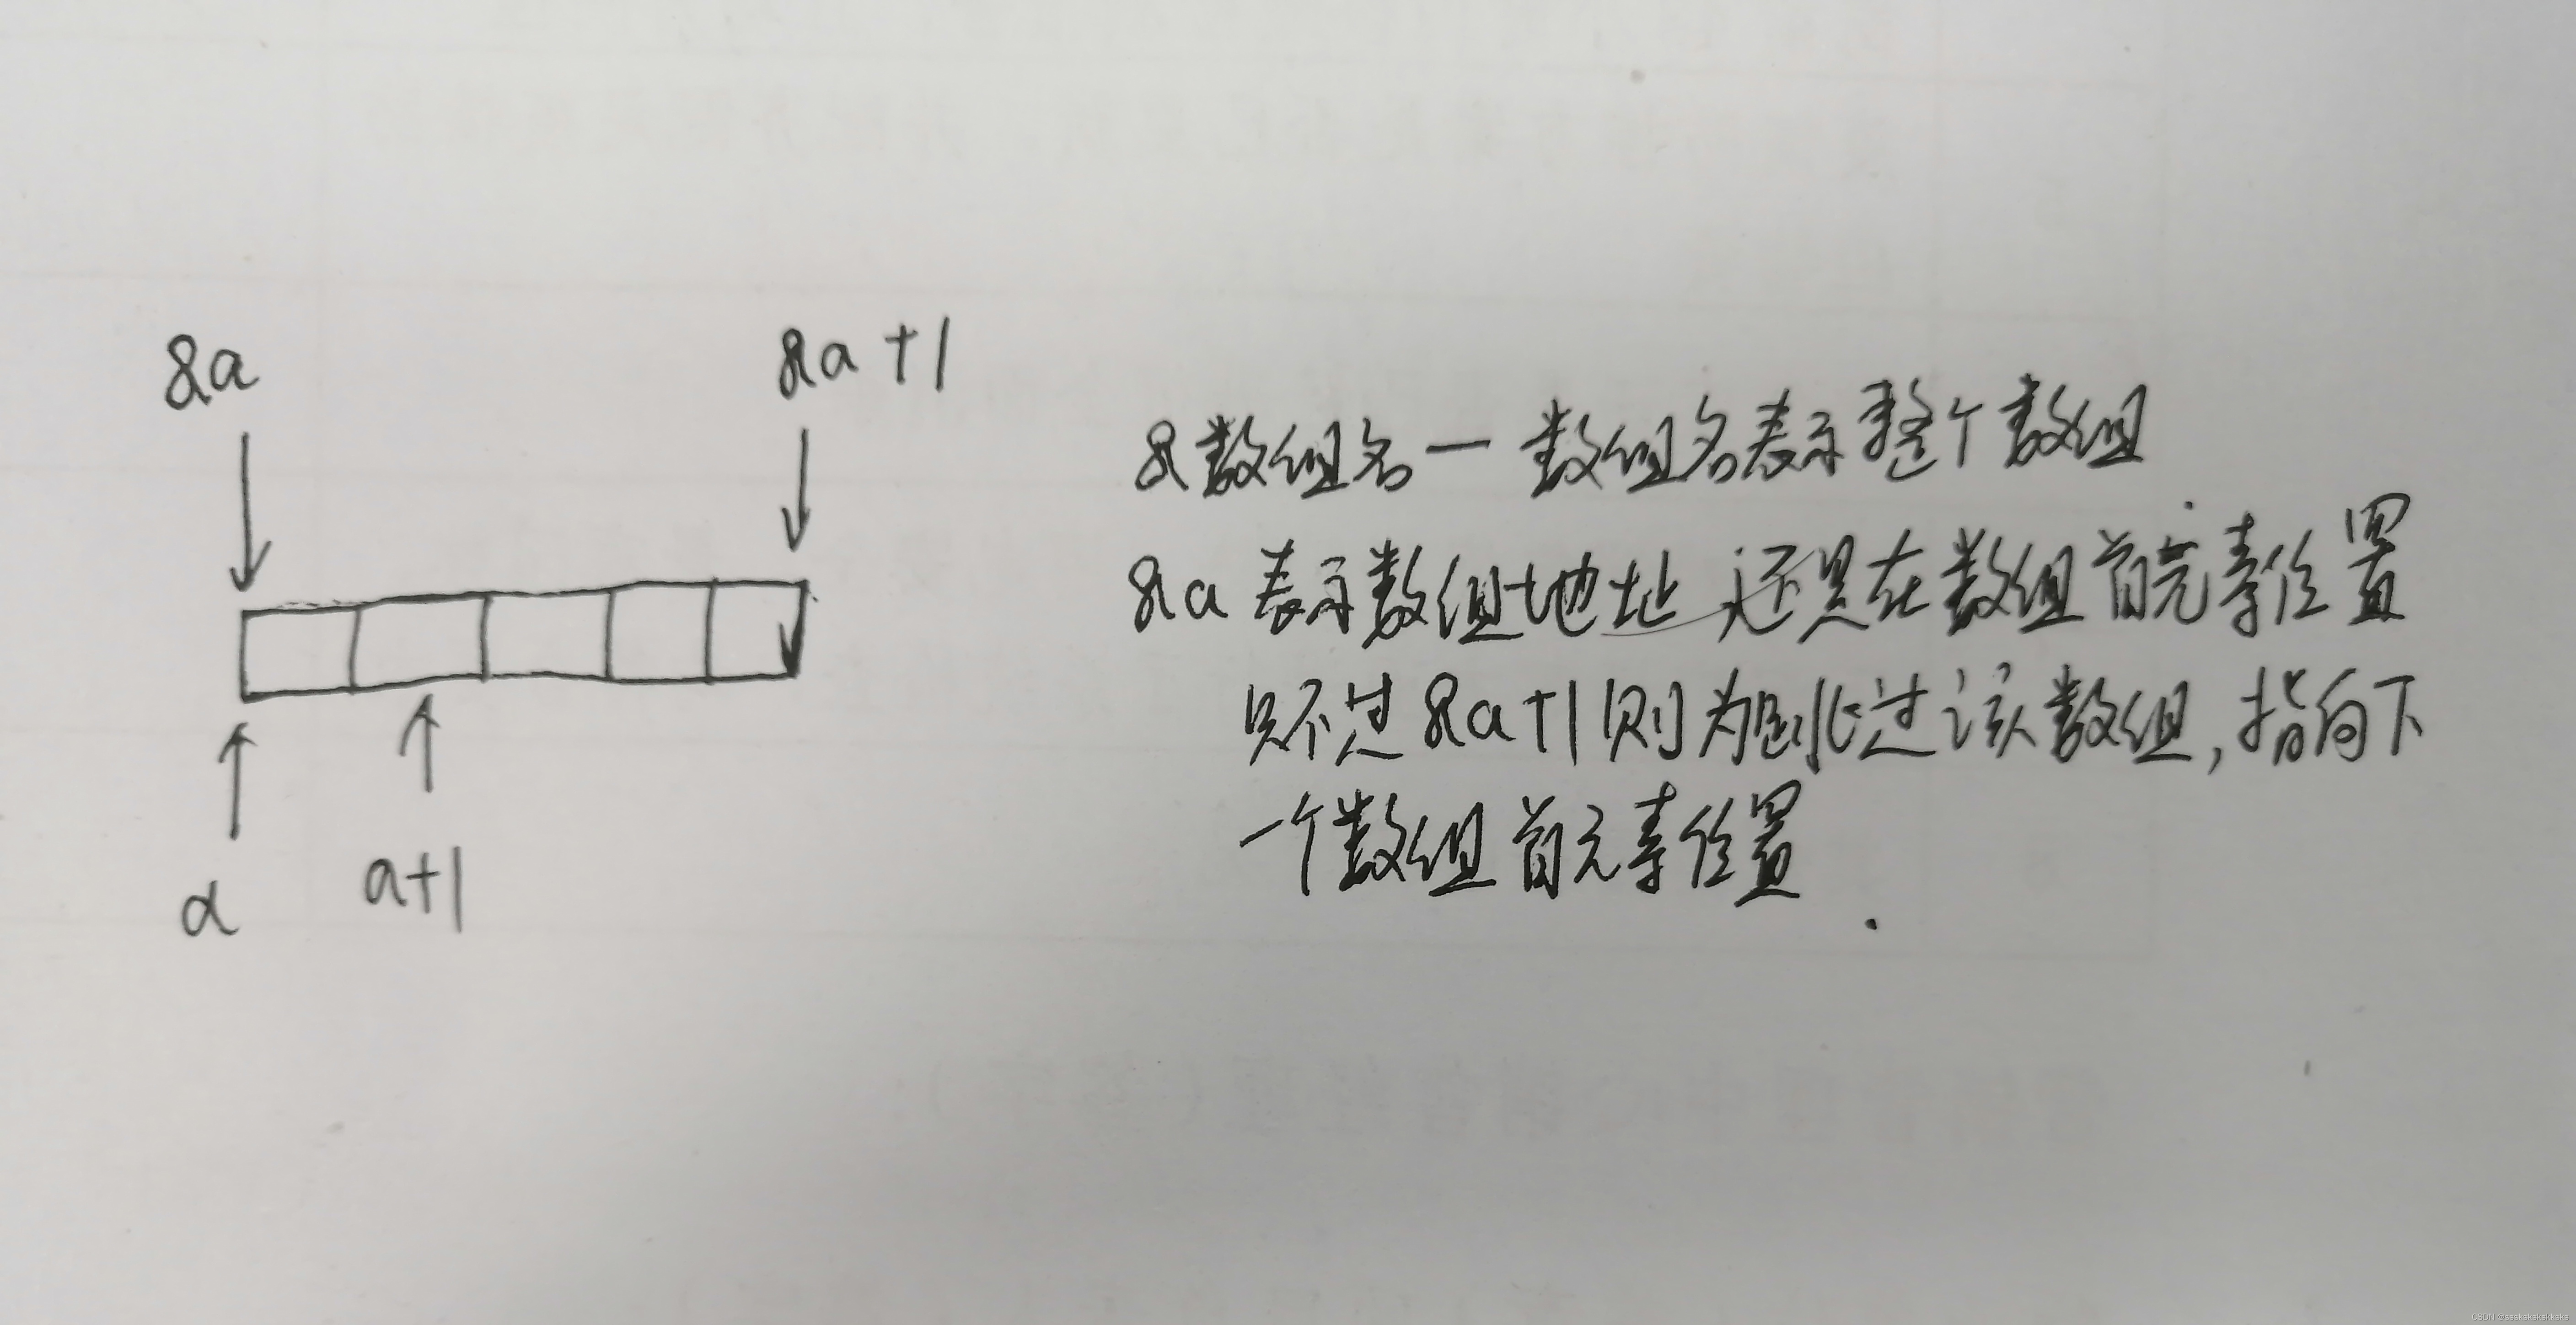 &a
&a+1
a
a+1
&数组名一数组名表示整个数组
&a 表示数组地址 还是在数组首元素位置
只不过&a+1则为跳过该数组,指向下
一个数组首元素位置.